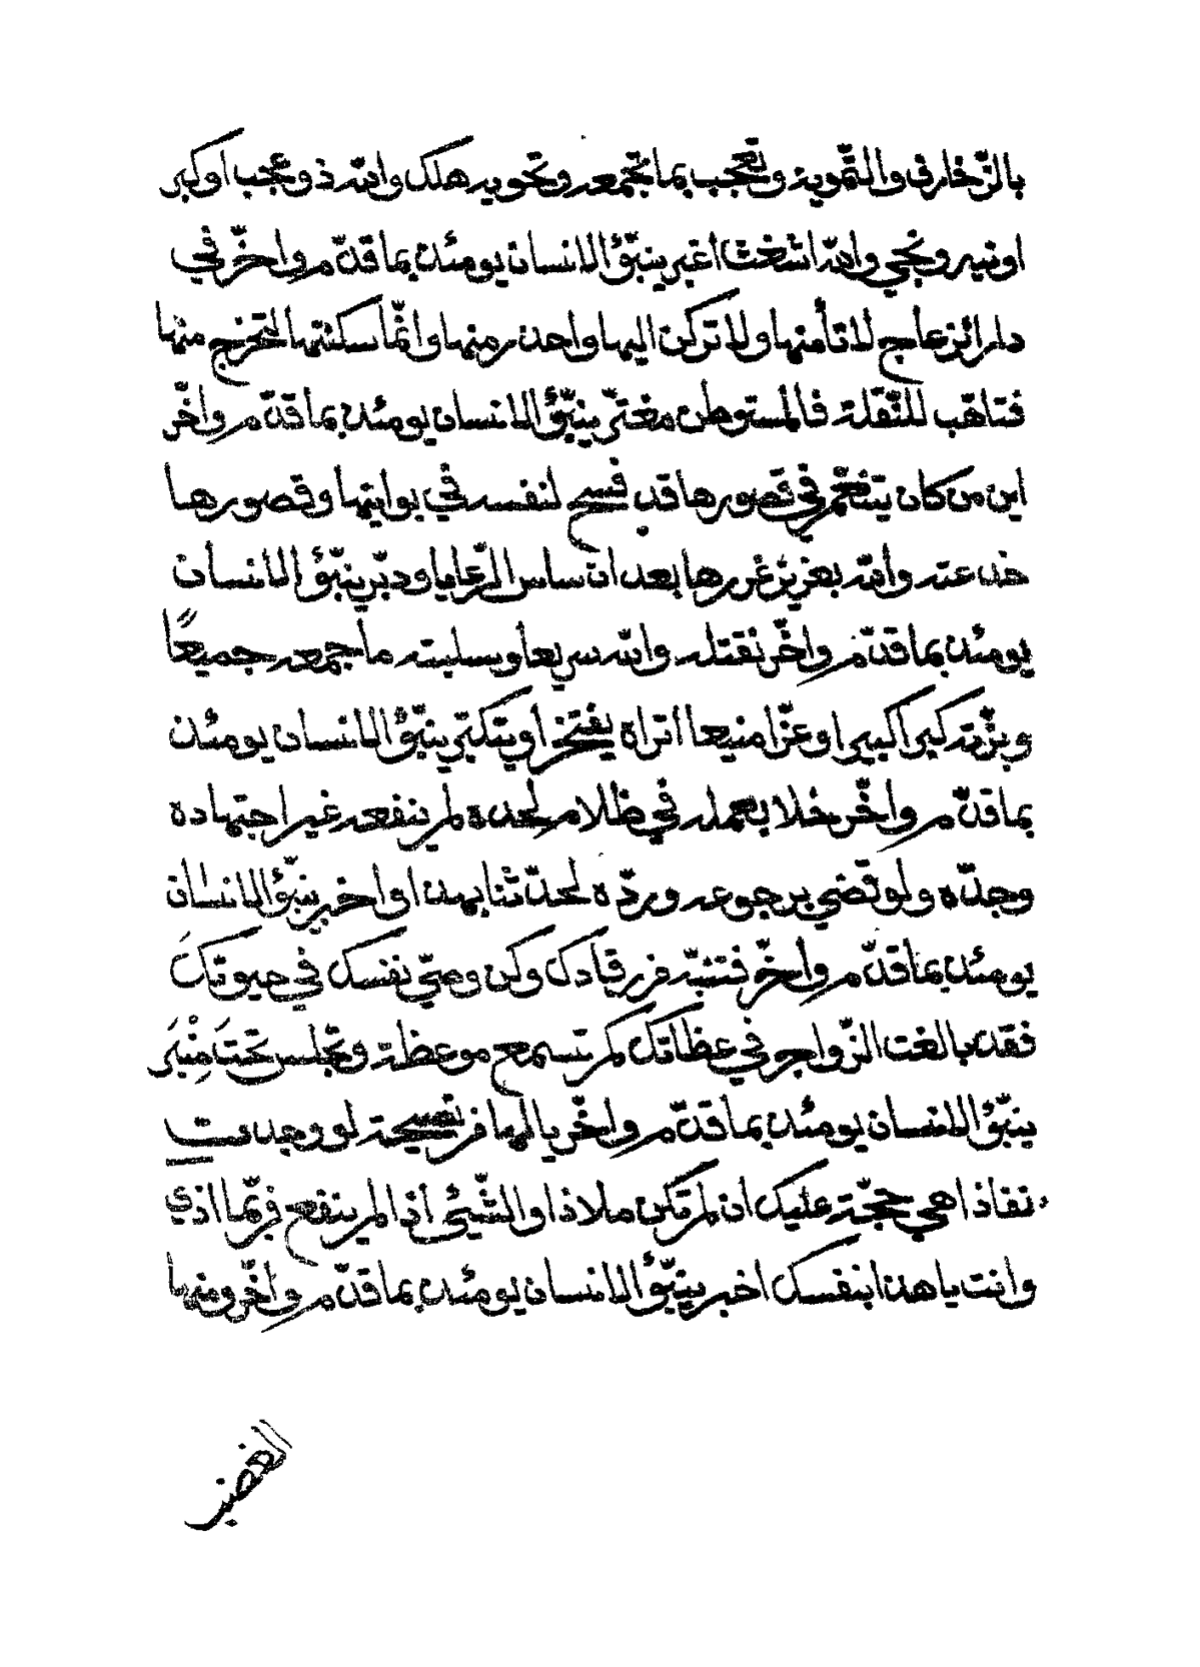 بالزّخارف والتّمويه وتعجب بما تجمعه وتحويه هلك والله ذو عجب او كبر
او تيه ونجي والله اشعث اغبر ينبّؤ الانسان يومئذ بما قدّم واخّر في
دار ازعاج لا تأمنها ولا تركن اليها واحذر منها وانّما سكنتها لتخرج منها
فتاهّب للنّقلة فالمستوطن مغترّ ينبّؤ الانسان يومئذ بما قدّم واخّر
اين من كان يتنعّم في قصورها قد فسح لنفسه في بوايتها وقصورها
خدعته والله بغرير غرورها بعد ان ساس الرّعايا ودبّر ينبّؤ الانسان
يومئذ بما قدّم واخّر نقتله والله سريعا وسلبته ما جمعه جميعًا
وبزّته كبرا كبيرا وعزّا منيعا اتراه يفتخر أو يتكبّر ينبّؤ الانسان يومئذ
بما قدّم واخّر خلا بعمله في ظلام لحده لم ينفعه غير اجتهاده
وجدّه ولو قضي برجوعه وردّه لحدّثنا بهذا واخبر ينبّؤ الانسان
يومئذ بما قدّم واخّر فتنبّه فرقادك وكن وصيّ نفسك في حيوتكَ
فقد بالغت الزّواجر في عظاتك لم تسمع موعظة وتجلس تحتَ مِنْبَر
ينبّؤ الانسان يومئذ بما قدّم واخّر يا لها فر نصيحة لو وجدت
نفاذا هي حجّة عليك ان لم تكن ملاذا والشّيئ اذا لم ينفع فربّما اذي
وانت يا هذا بنفسك اخبر ينبّؤ الانسان يومئذ بما قدّم واخّر ومنها